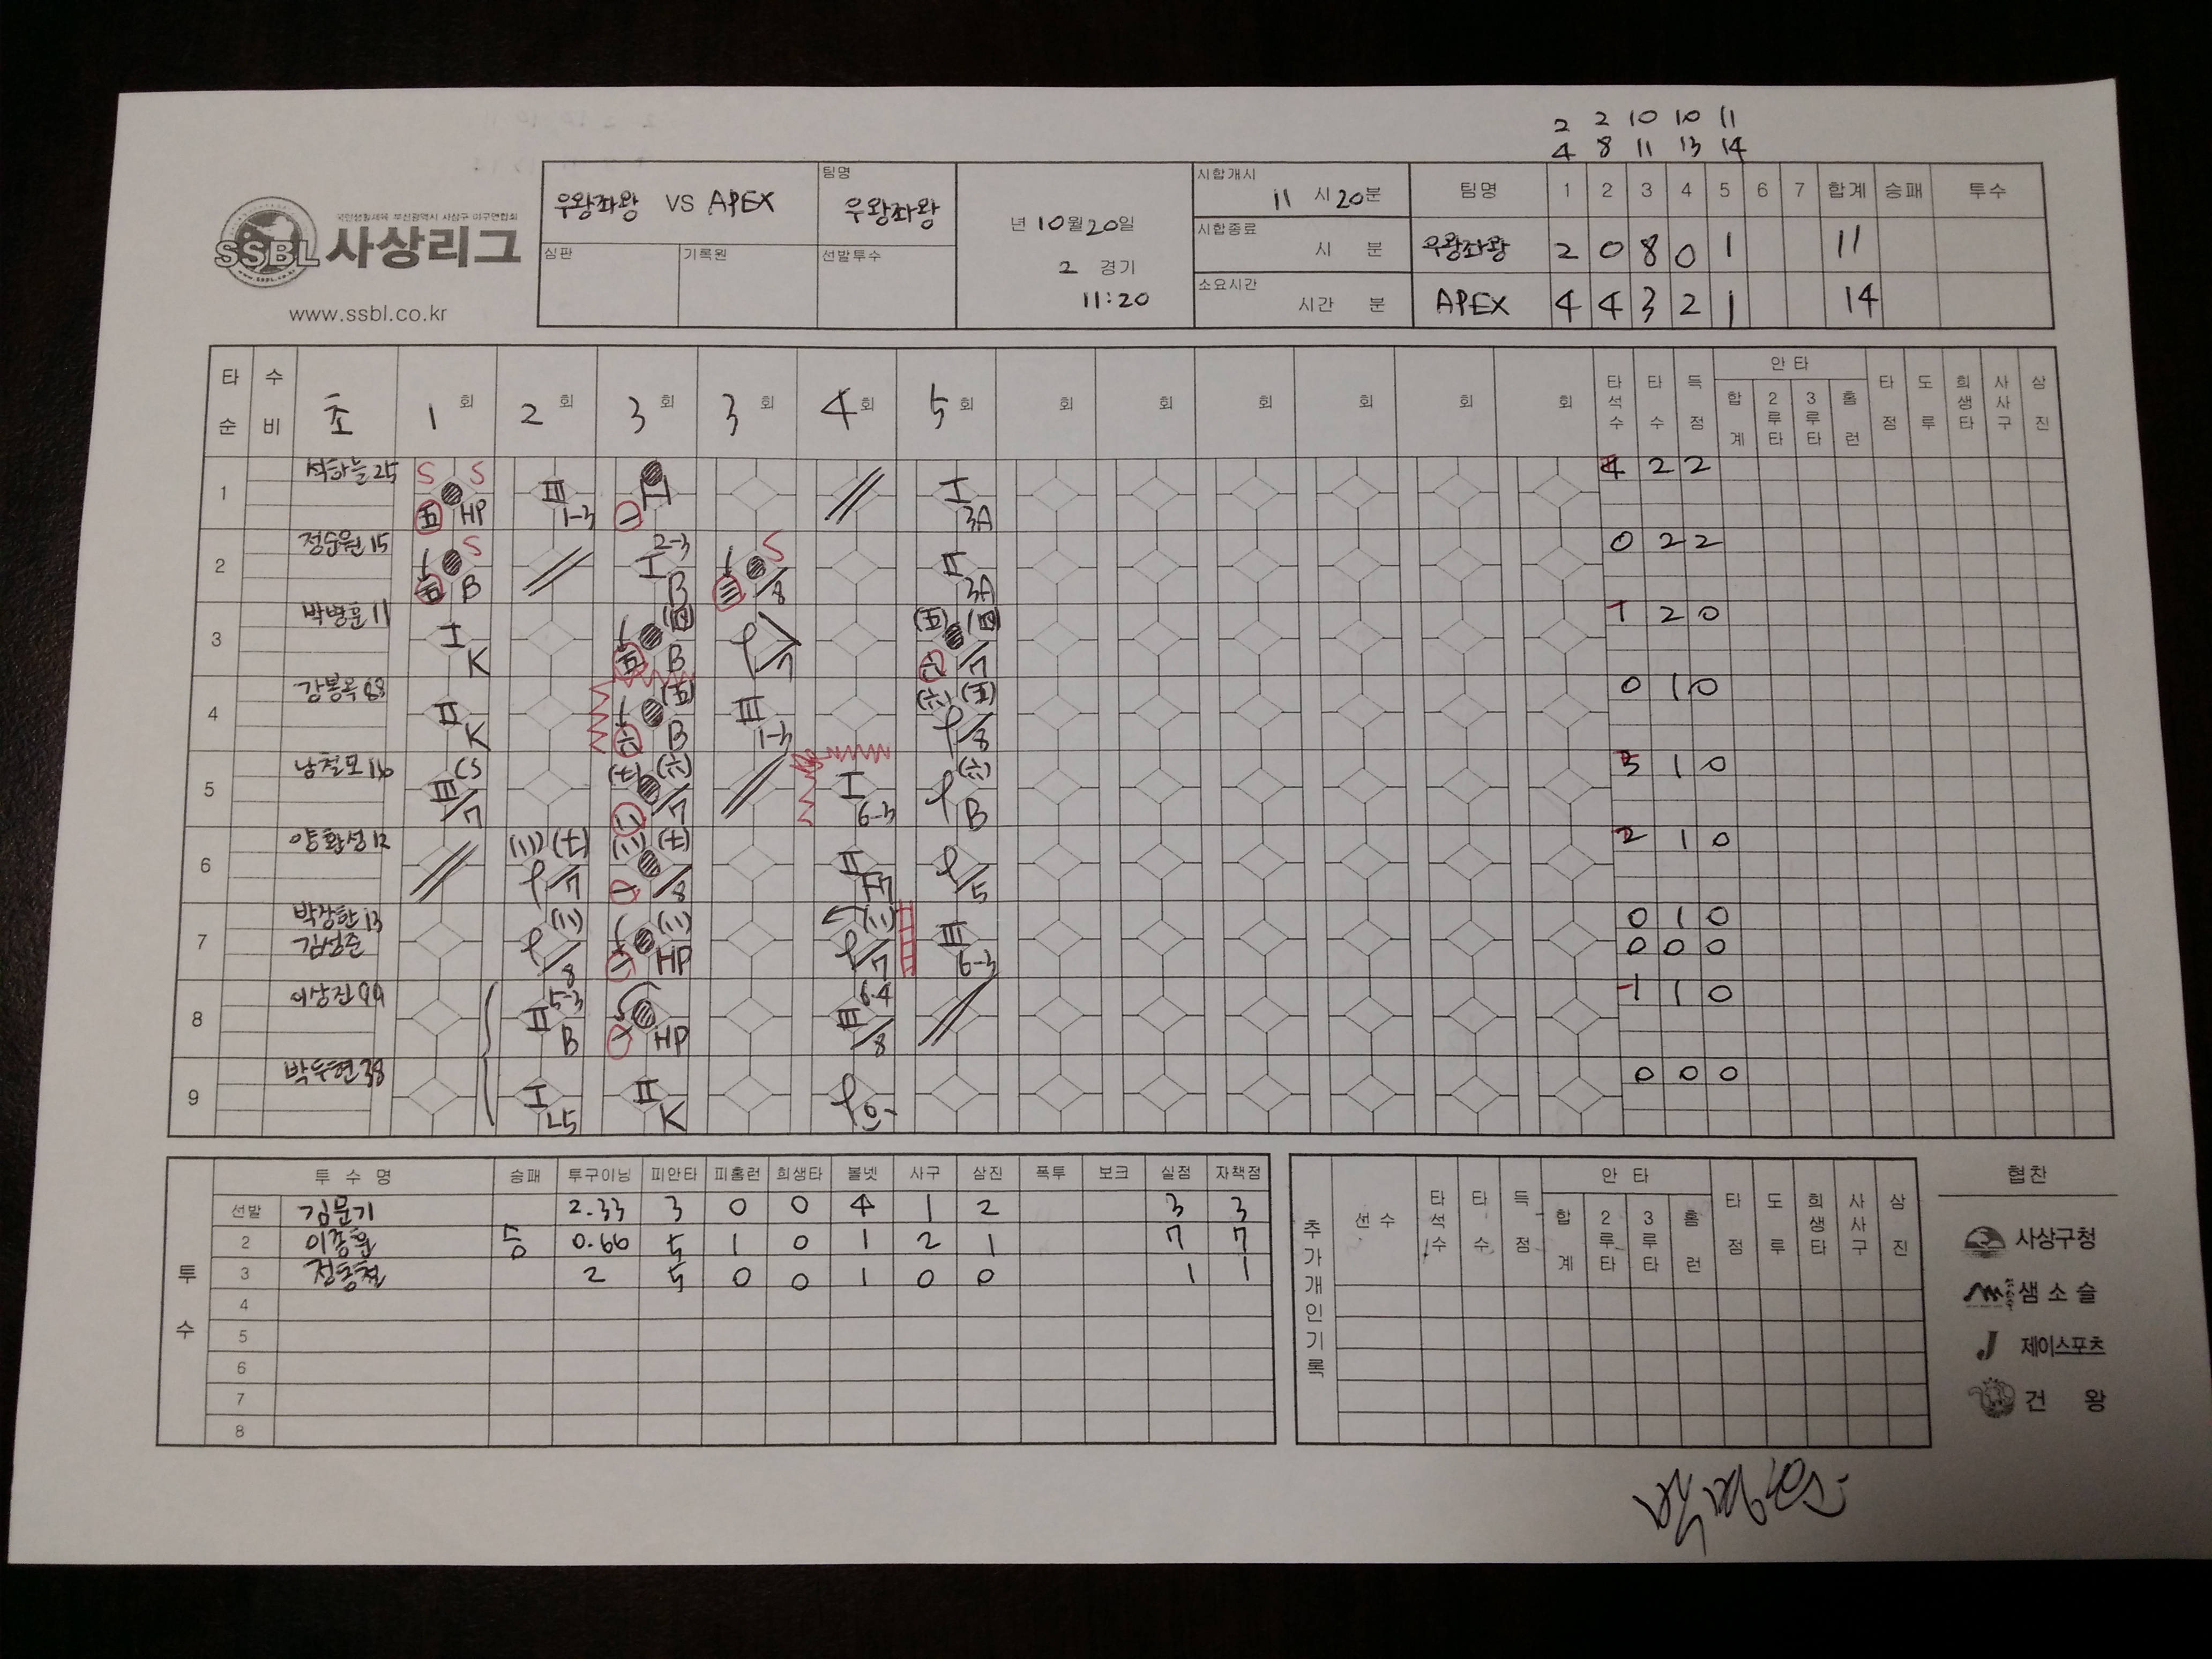 2 2 10 10 11
4 8 11 13 14
국민생활체육 부산광역시 사상구 야구연합회
SSBL 사상리그
www.ssbl.co.kr
우왕좌왕 VS APEX
팀명
우왕좌왕
심판 기록원 선발투수
년 10월 20일
2 경기
11:20
시합개시
11 시 20분
시합종료
시 분
소요시간
시간 분
팀명 1 2 3 4 5 6 7 합계 승패 투수
우왕좌왕 2 0 8 0 1 11
APEX 4 4 3 2 1 14
타순 수비 초 1회 2회 3회 3회 4회 5회 회 회 회 회 회 회 타석수 타수 득점 안타 합계 2루타 3루타 홈런 타점 도루 희생타 사사구 삼진
1 석하늘 25 S S 五 HP III 1-3 I I 3A 4 2 2
2 정순원 15 S B 2-3 I B S 三 /8 II 3A 0 2 2
3 박병훈 11 I K (四) 五 B /7 (五) (四) 六 /7 1 2 0
4 강봉옥 88 II K (五) 六 B III 1-3 (六) (五) /8 0 1 0
5 남철모 16 CS III /7 (七) (六) /7 I 6-3 (六) B 3 1 0
6 양황성 12 (七) /7 (七) /8 II F7 /5 2 1 0
7 박장한 13 /8 HP /7 III 6-3 0 1 0
김성준 0 0 0
8 이상진 99 5-3 II B HP 6-4 III /8 1 1 0
9 박두현 38 I L5 II K 0 0 0
투수명 승패 투구이닝 피안타 피홈런 희생타 볼넷 사구 삼진 폭투 보크 실점 자책점
투수
선발 김문기 2.33 3 0 0 4 1 2 3 3
2 승 0.66 5 1 0 1 2 1 7 7
3 2 5 0 0 1 0 0 1 1
4
5
6
7
8
추가개인기록
선수 타석수 타수 득점 안타 합계 2루타 3루타 홈런 타점 도루 희생타 사사구 삼진
협찬
사상구청
샘소슬
J 제이스포츠
건왕